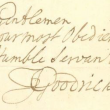 Gentlemen
Your most Obedie
Humble Servan
Goodric